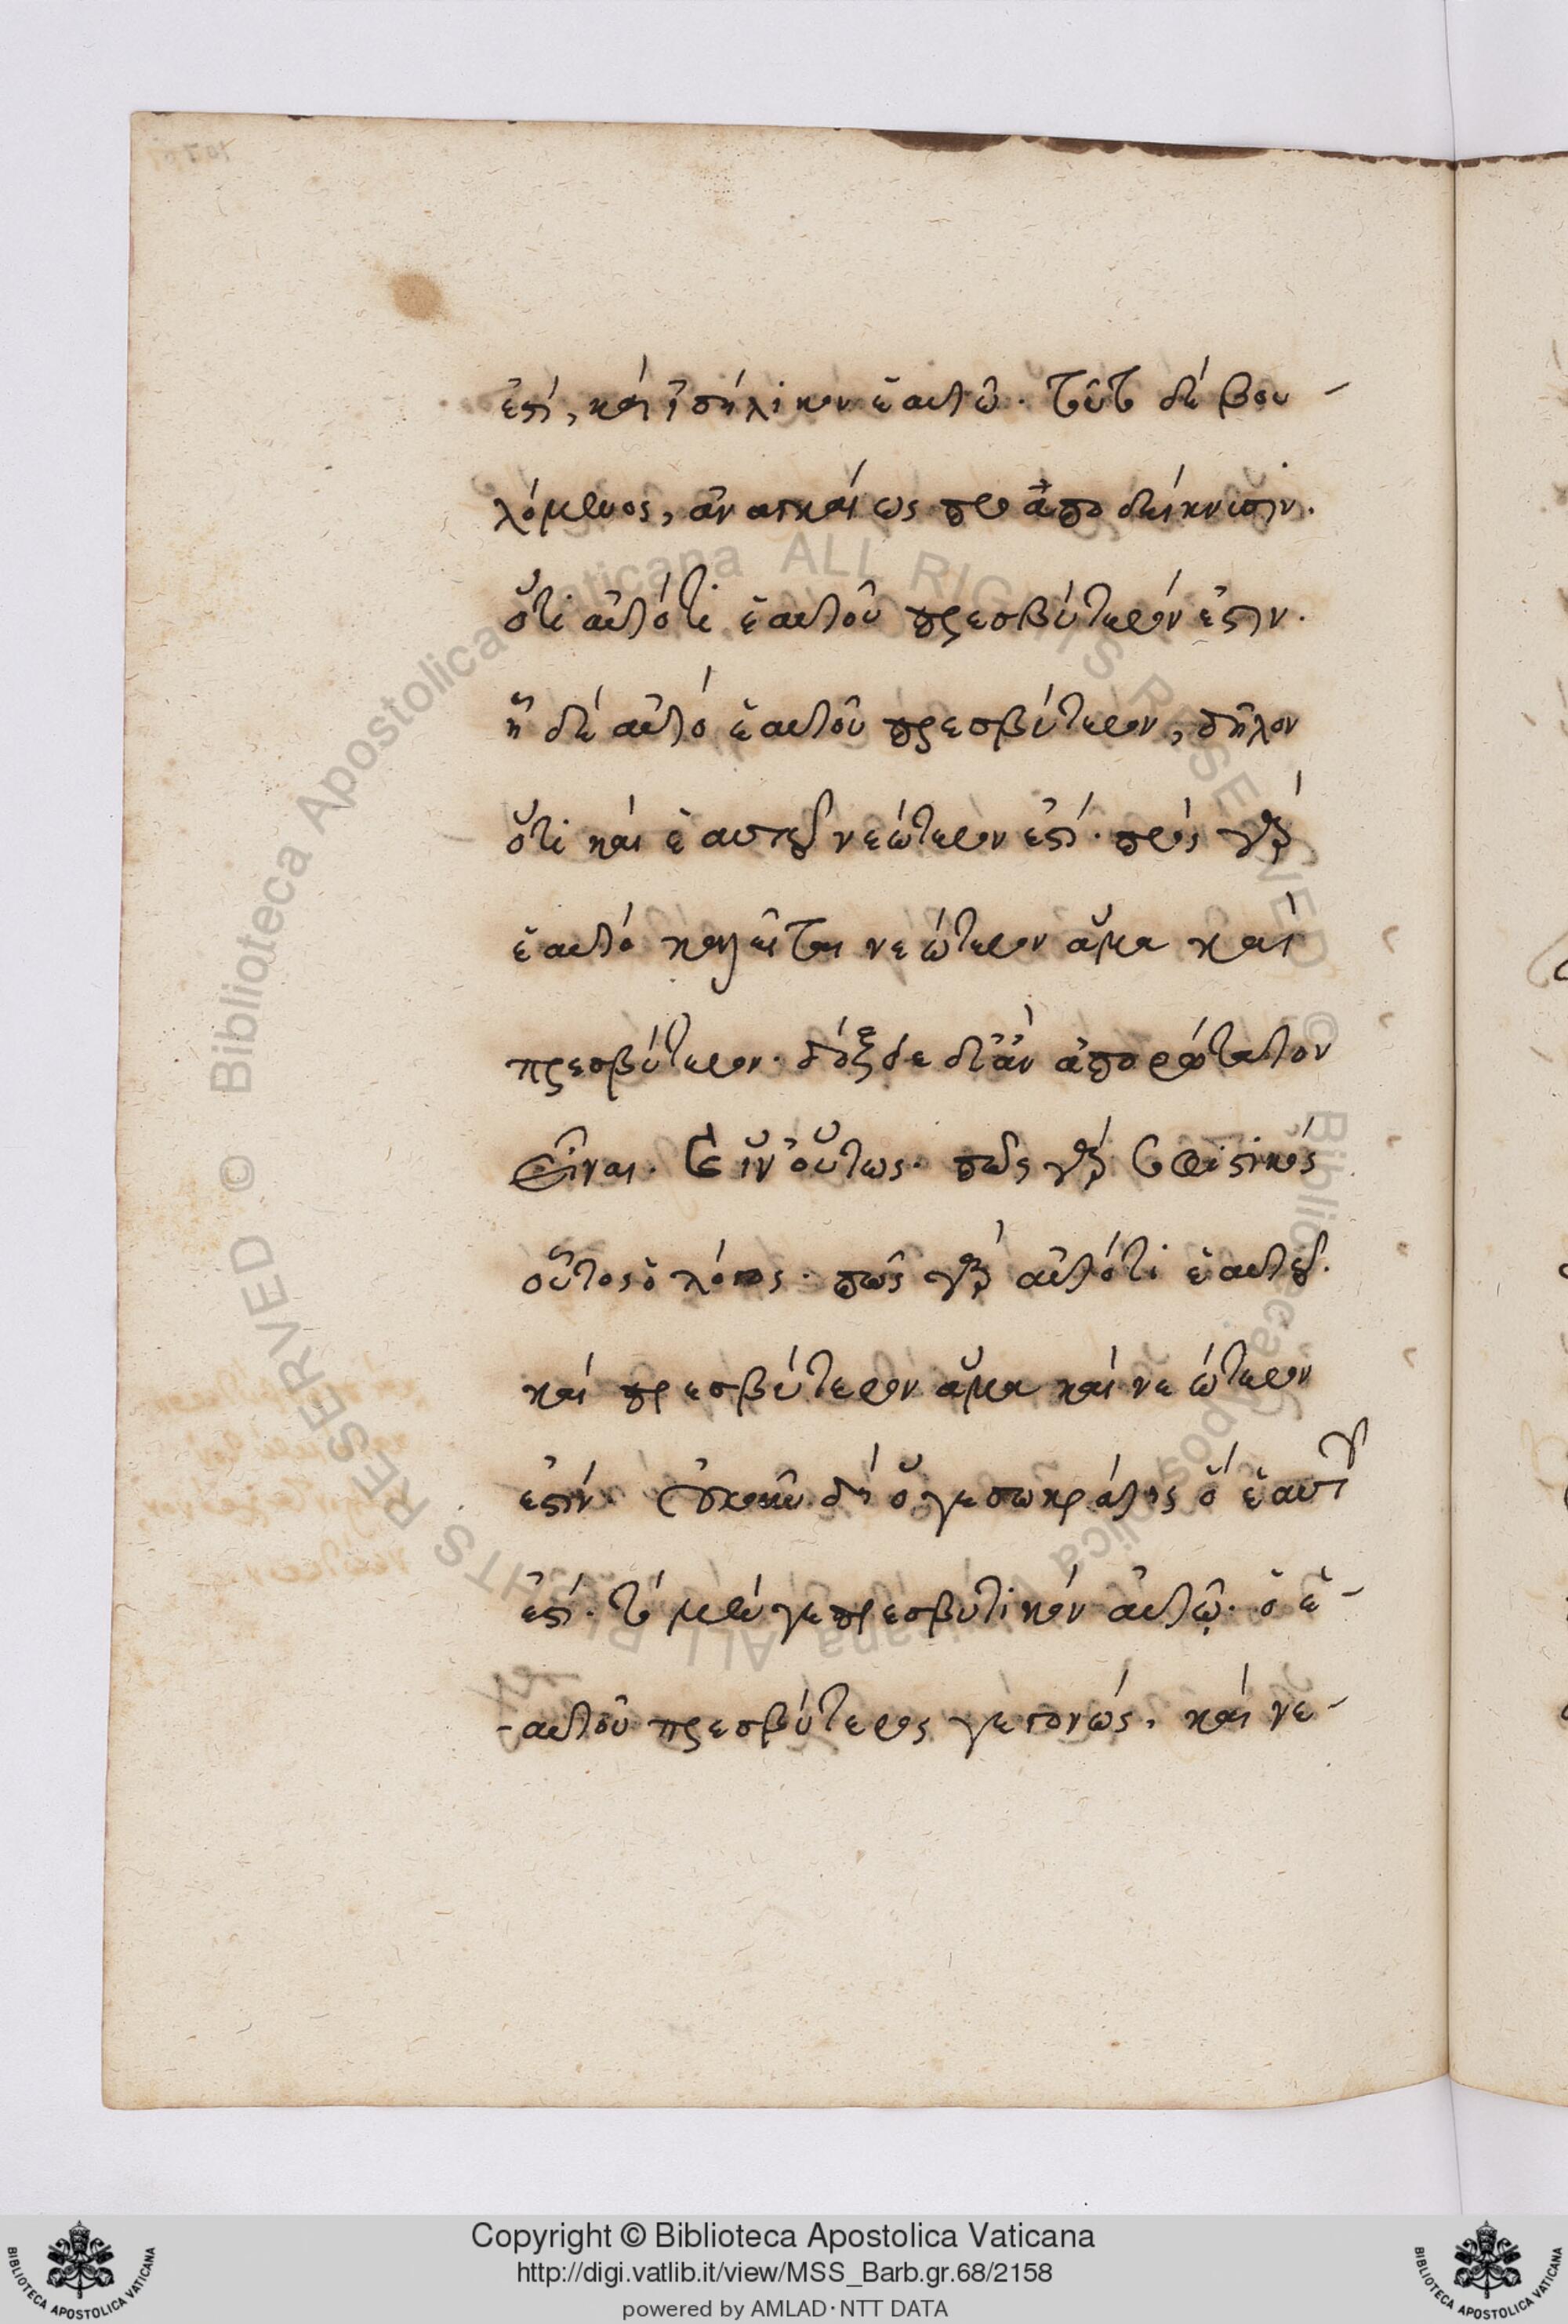 ἐστί, καὶ ἰσήλικον ἑαυτῶ. τοῦτο δὲ βου-
λόμενος, ἀναγκαίως προαποδείκνυσιν.
ὅτι αὐτό τι ἑαυτοῦ πρεσβύτερόν ἐστιν.
ᾗ δὲ αὐτὸ ἑαυτοῦ πρεσβύτερον, δῆλον
ὅτι καὶ ἑαυτοῦ νεώτερον ἐστί. πρὸς γὰρ
ἑαυτὸ νεώτερον ἅμα καὶ
πρεσβύτερον. δόξειε δ' ἂν ἀπορώτατον
εἶναι. οὕτως. πῶς γὰρ σοφιστικὸς
οὗτος ὁ λόγος. πῶς γὰρ αὐτό τι ἑαυτοῦ.
καὶ πρεσβύτερον ἅμα καὶ νεώτερον
ἐστίν. δὴ ὅ γε σωκράτης ὁ ἑαυτοῦ
ἐστί. τὸ μέν γε πρεσβυτικὸν αὐτῷ. ὁ ἑ-
-αυτοῦ πρεσβύτερος γεγονώς. καὶ νε-
Copyright © Biblioteca Apostolica Vaticana
http://digi.vatlib.it/view/MSS_Barb.gr.68/2158
powered by AMLAD·NTT DATA
BIBLIOTECA APOSTOLICA VATICANA
BIBLIOTECA APOSTOLICA VATICANA